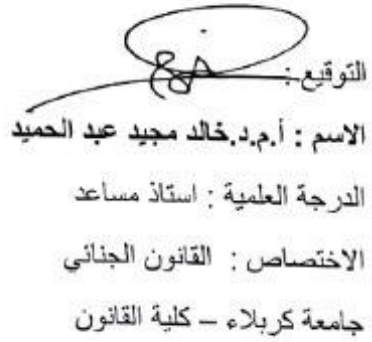 التوقيع :
الاسم : أ.م.د.خالد مجيد عبد الحميد
الدرجة العلمية : استاذ مساعد
الاختصاص : القانون الجنائي
جامعة كربلاء – كلية القانون